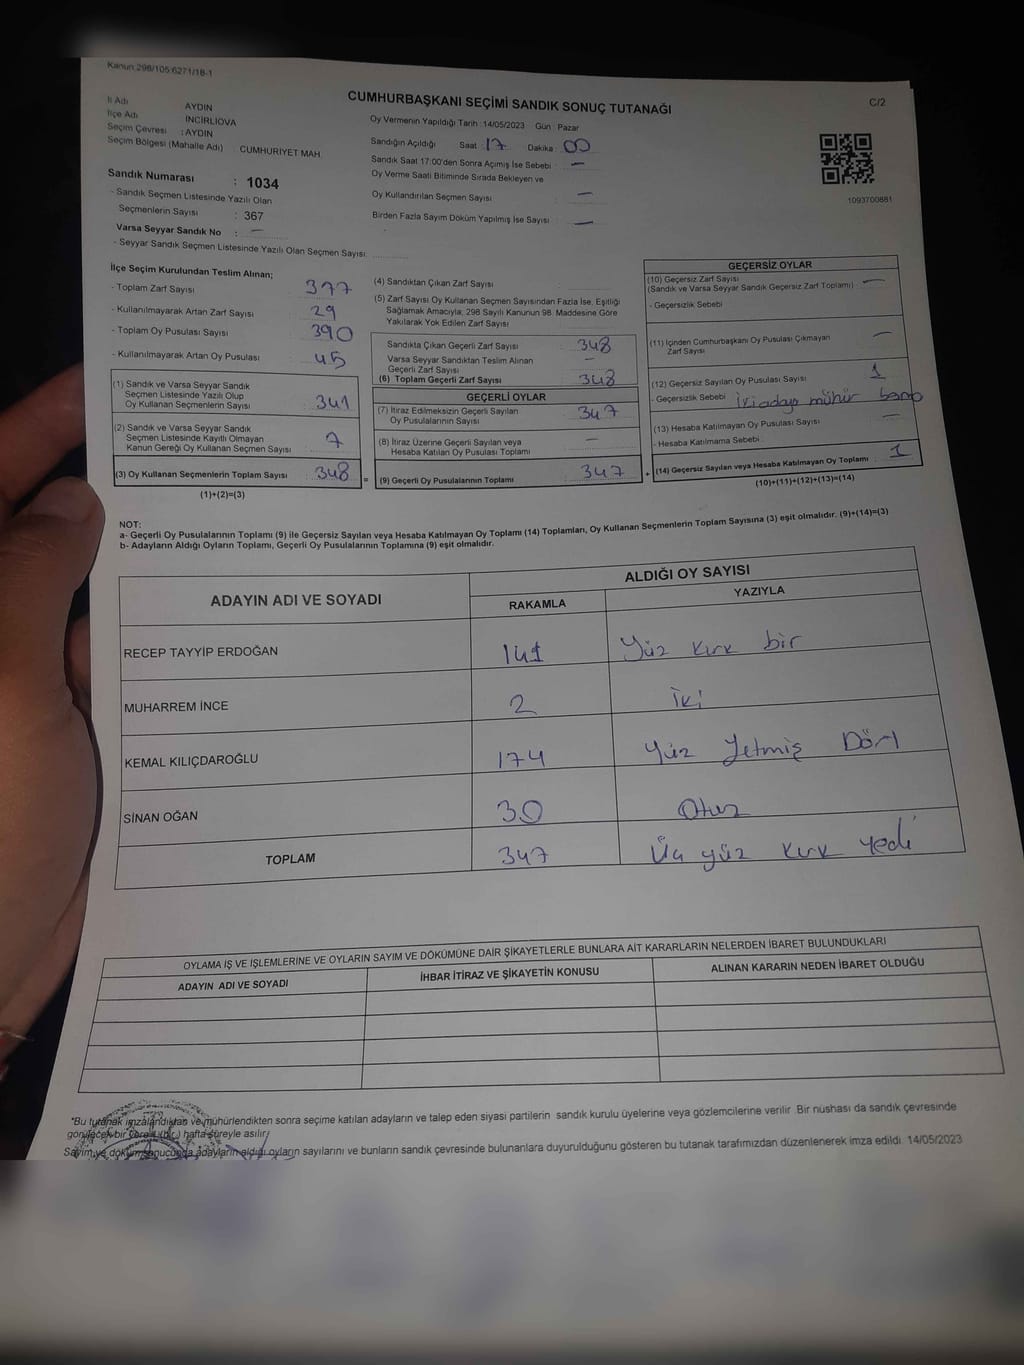 Kanun:298/105:6271/18-1
CUMHURBAŞKANI SEÇİMİ SANDIK SONUÇ TUTANAĞI
C/2
İl Adı AYDIN
İlçe Adı İNCİRLİOVA
Seçim Çevresi : AYDIN
Seçim Bölgesi (Mahalle Adı) CUMHURİYET MAH.
Sandık Numarası : 1034
- Sandık Seçmen Listesinde Yazılı Olan
Seçmenlerin Sayısı : 367
Varsa Seyyar Sandık No : —
- Seyyar Sandık Seçmen Listesinde Yazılı Olan Seçmen Sayısı:
Oy Vermenin Yapıldığı Tarih :14/05/2023 Gün : Pazar
Sandığın Açıldığı Saat : 17 Dakika : 00
Sandık Saat 17:00'den Sonra Açımış İse Sebebi : —
Oy Verme Saati Bitiminde Sırada Bekleyen ve
Oy Kullandırılan Seçmen Sayısı : —
Birden Fazla Sayım Döküm Yapılmış İse Sayısı : —
1093700881
İlçe Seçim Kurulundan Teslim Alınan;
- Toplam Zarf Sayısı 377
- Kullanılmayarak Artan Zarf Sayısı 29
- Toplam Oy Pusulası Sayısı 390
- Kullanılmayarak Artan Oy Pusulası 45
(1) Sandık ve Varsa Seyyar Sandık
Seçmen Listesinde Yazılı Olup
Oy Kullanan Seçmenlerin Sayısı 341
(2) Sandık ve Varsa Seyyar Sandık
Seçmen Listesinde Kayıtlı Olmayan
Kanun Gereği Oy Kullanan Seçmen Sayısı 7
(3) Oy Kullanan Seçmenlerin Toplam Sayısı 348
(1)+(2)=(3)
(4) Sandıktan Çıkan Zarf Sayısı
(5) Zarf Sayısı Oy Kullanan Seçmen Sayısından Fazla İse, Eşitliği
Sağlamak Amacıyla, 298 Sayılı Kanunun 98. Maddesine Göre
Yakılarak Yok Edilen Zarf Sayısı
Sandıkta Çıkan Geçerli Zarf Sayısı 348
Varsa Seyyar Sandıktan Teslim Alınan
Geçerli Zarf Sayısı —
(6) Toplam Geçerli Zarf Sayısı 348
GEÇERLİ OYLAR
(7) İtiraz Edilmeksizin Geçerli Sayılan
Oy Pusulalarının Sayısı 347
(8) İtiraz Üzerine Geçerli Sayılan veya
Hesaba Katılan Oy Pusulası Toplamı —
= (9) Geçerli Oy Pusulalarının Toplamı 347
GEÇERSİZ OYLAR
(10) Geçersiz Zarf Sayısı
(Sandık ve Varsa Seyyar Sandık Geçersiz Zarf Toplamı) —
- Geçersizlik Sebebi
(11) İçinden Cumhurbaşkanı Oy Pusulası Çıkmayan
Zarf Sayısı —
(12) Geçersiz Sayılan Oy Pusulası Sayısı 1
- Geçersizlik Sebebi iki aday mühür
(13) Hesaba Katılmayan Oy Pusulası Sayısı —
- Hesaba Katılmama Sebebi
+ (14) Geçersiz Sayılan veya Hesaba Katılmayan Oy Toplamı 1
(10)+(11)+(12)+(13)=(14)
NOT:
a- Geçerli Oy Pusulalarının Toplamı (9) ile Geçersiz Sayılan veya Hesaba Katılmayan Oy Toplamı (14) Toplamları, Oy Kullanan Seçmenlerin Toplam Sayısına (3) eşit olmalıdır. (9)+(14)=(3)
b- Adayların Aldığı Oyların Toplamı, Geçerli Oy Pusulalarının Toplamına (9) eşit olmalıdır.
ADAYIN ADI VE SOYADI
ALDIĞI OY SAYISI
RAKAMLA YAZIYLA
RECEP TAYYİP ERDOĞAN 141 Yüz kırk bir
MUHARREM İNCE 2 iki
KEMAL KILIÇDAROĞLU 174 Yüz Yetmiş Dört
SİNAN OĞAN 30 Otuz
TOPLAM 347 Üç yüz kırk yedi
OYLAMA İŞ VE İŞLEMLERİNE VE OYLARIN SAYIM VE DÖKÜMÜNE DAİR ŞİKAYETLERLE BUNLARA AİT KARARLARIN NELERDEN İBARET BULUNDUKLARI
ADAYIN ADI VE SOYADI İHBAR İTİRAZ VE ŞİKAYETİN KONUSU ALINAN KARARIN NEDEN İBARET OLDUĞU
*Bu tutanak imzalandıktan ve mühürlendikten sonra seçime katılan adayların ve talep eden siyasi partilerin sandık kurulu üyelerine veya gözlemcilerine verilir. Bir nüshası da sandık çevresinde
görülecek bir yere 1 (bir) hafta süreyle asılır.
Sayım ve döküm sonucunda adayların aldığı oyların sayılarını ve bunların sandık çevresinde bulunanlara duyurulduğunu gösteren bu tutanak tarafımızdan düzenlenerek imza edildi. 14/05/2023